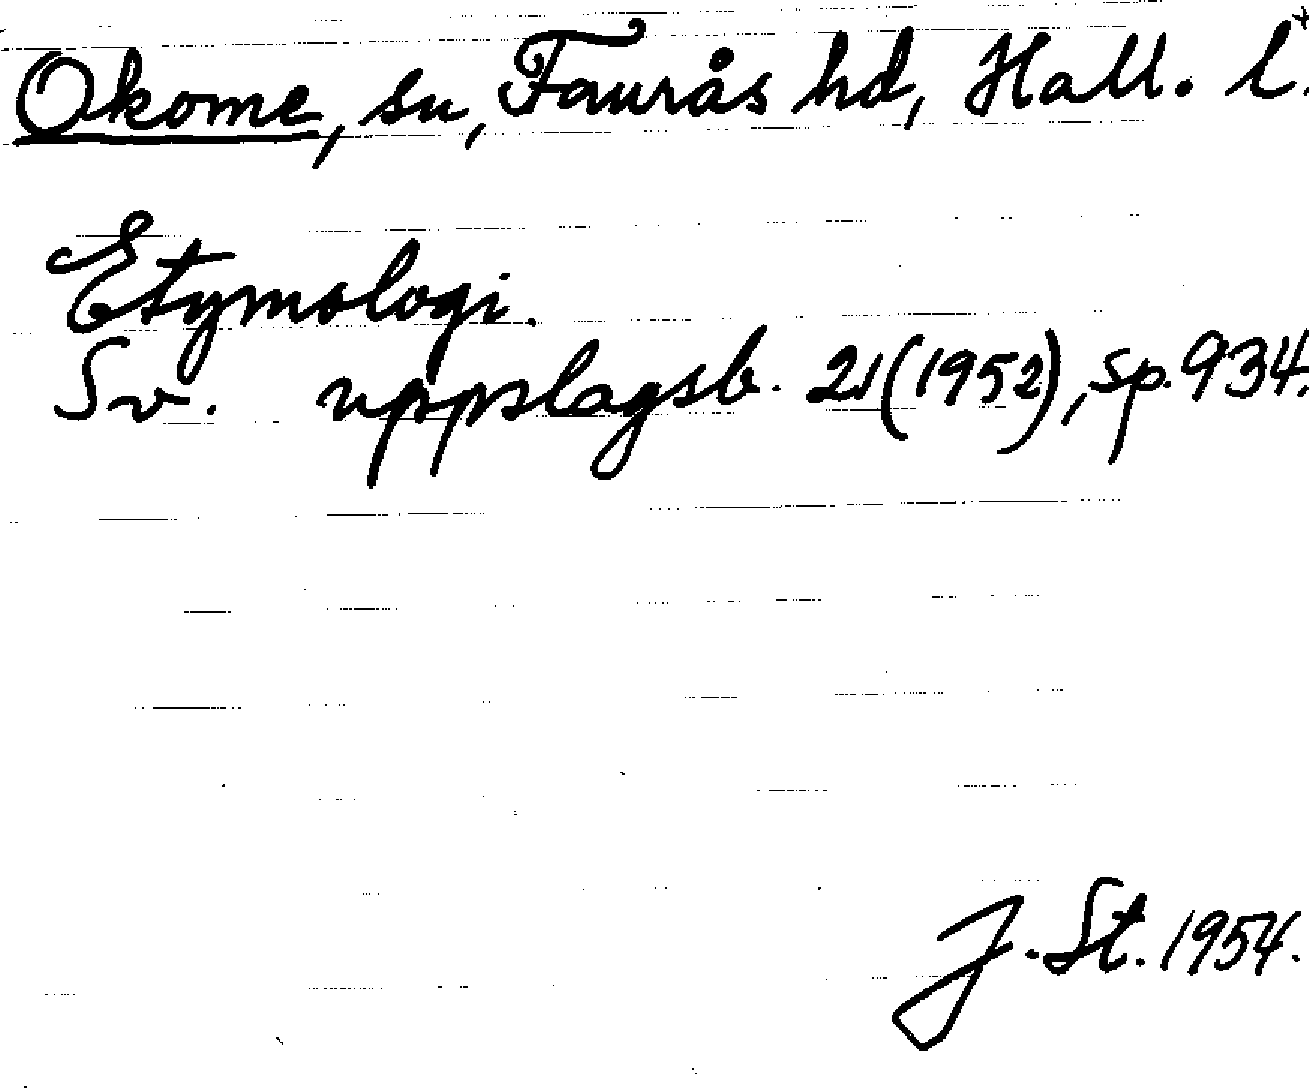 Okome, sn, Faurås hd, Hall. l.
Etymologi.
Sv. uppslagsb. 21 (1952), sp. 934.
J. St. 1954.